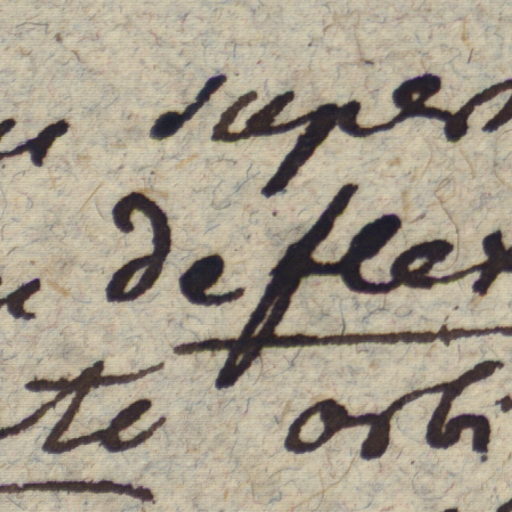 super
deflex
te orbi